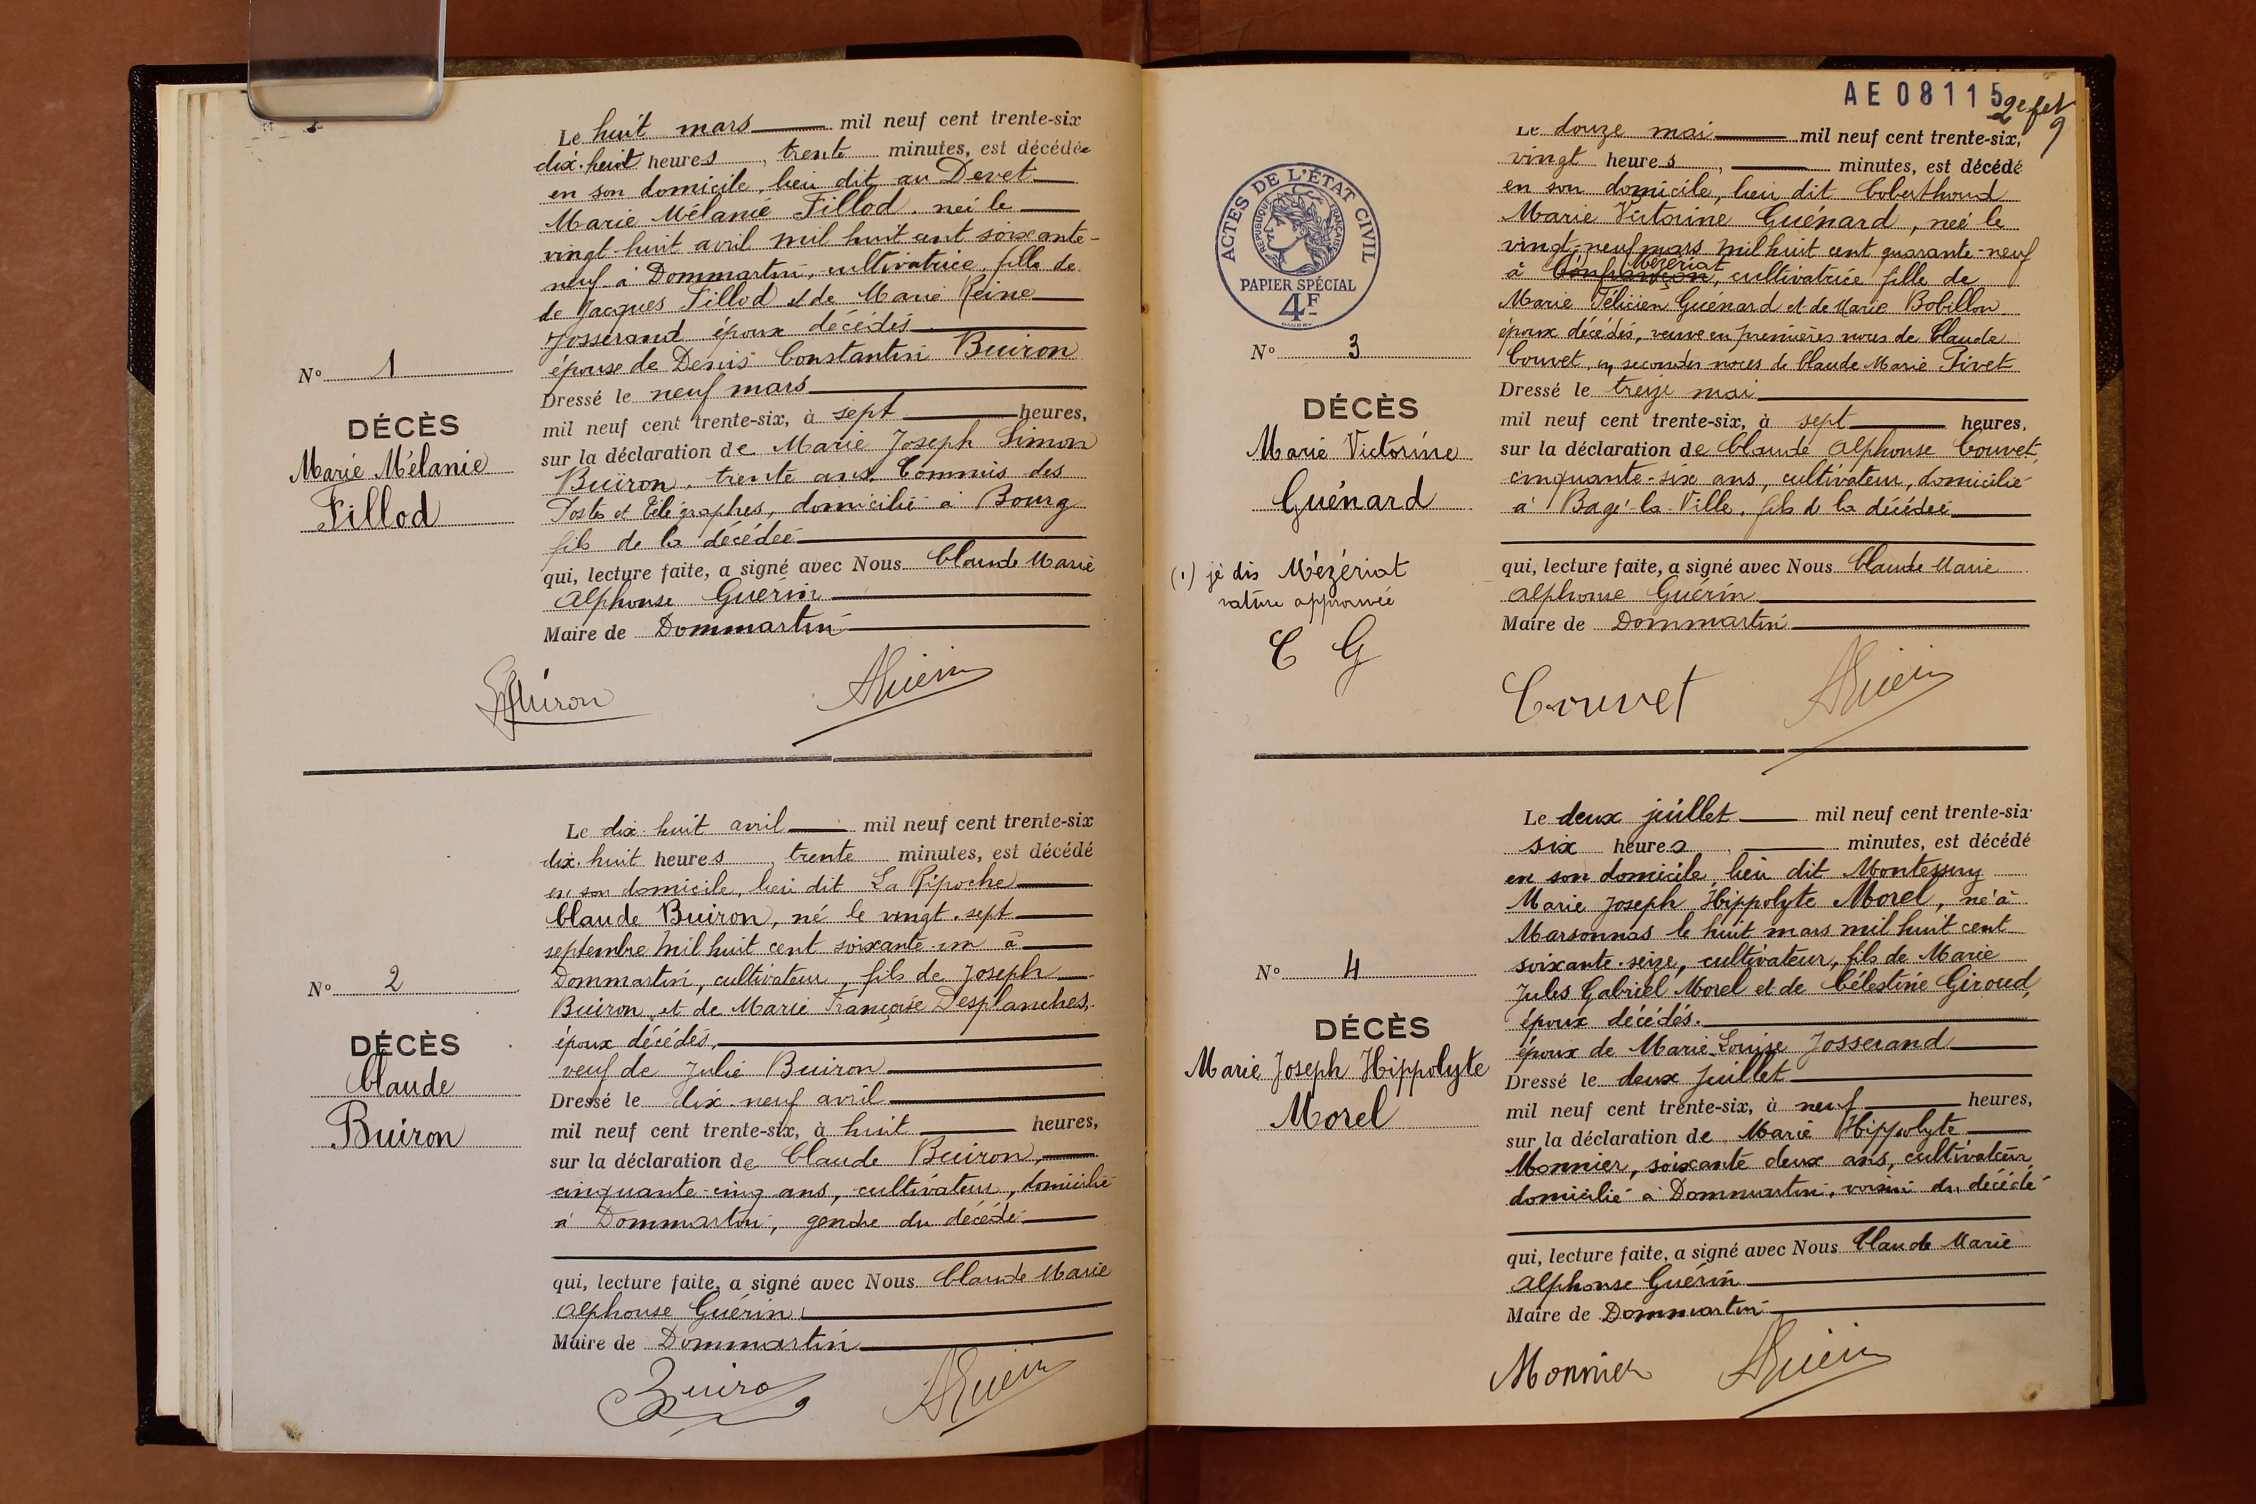 Le huit mars mil neuf cent trente-six
dix-huit heures, trente minutes, est décédée
en son domicile, lieu dit au Devet
Marie Mélanie Fillod, née le
vingt-huit avril mil huit cent soixante-
neuf à Dommartin, cultivatrice, fille de
de Jacques Fillod et de Marie Reine
Josserand époux décédés
épouse de Denis Constantin Buiron
Nº 1
DÉCÈS
Marie Mélanie
Fillod
Dressé le neuf mars
mil neuf cent trente-six, à sept heures,
sur la déclaration de Marie Joseph Simon
Buiron, trente ans, Commis des
Postes et Télégraphes, domicilié à Bourg
fils de la décédée
qui, lecture faite, a signé avec Nous Claude Marie
Alphonse Guérin
Maire de Dommartin
Buiron
AGuérin
Le dix-huit avril mil neuf cent trente-six
dix-huit heures, trente minutes, est décédé
en son domicile, lieu dit La Ripoche
Claude Buiron, né le vingt-sept
septembre mil huit cent soixante-un à
Dommartin, cultivateur, fils de Joseph
Buiron et de Marie Françoise Desplanches,
époux décédés,
veuf de Julie Buiron
Nº 2
DÉCÈS
Claude
Buiron
Dressé le dix neuf avril
mil neuf cent trente-six, à huit heures,
sur la déclaration de Claude Buiron,
cinquante-cinq ans, cultivateur, domicilié
à Dommartin, gendre du décédé
qui, lecture faite, a signé avec Nous Claude Marie
Alphonse Guérin
Maire de Dommartin
Buiro
AGuérin
AE 08115
2e fet
9
Le douze mai mil neuf cent trente-six,
vingt heures, minutes, est décédé
en son domicile, lieu dit Coberthoud
Marie Victorine Guénard, née le
vingt-neuf mars mil huit cent quarante-neuf
Mézériat
à Confrançon, cultivatrice fille de
Marie Félicien Guénard et de Marie Bobillon
époux décédés, veuve en premières noces de Claude
Couvet, en secondes noces de Claude Marie Pivet
ACTES DE L'ÉTAT CIVIL
RÉPUBLIQUE FRANÇAISE
PAPIER SPÉCIAL
4F
Nº 3
DÉCÈS
Marie Victorine
Guénard
(1) je dis Mézériat
rature approuvée
C G
Dressé le treize mai
mil neuf cent trente-six, à sept heures,
sur la déclaration de Claude Alphonse Couvet,
cinquante-six ans, cultivateur, domicilié
à Bagé-la-Ville, fils de la décédée
qui, lecture faite, a signé avec Nous Claude Marie
Alphonse Guérin
Maire de Dommartin
Couvet
AGuérin
Le deux juillet mil neuf cent trente-six
six heures, minutes, est décédé
en son domicile, lieu dit Montessuy
Marie Joseph Hippolyte Morel, né à
Marsonnas le huit mars mil huit cent
soixante-seize, cultivateur, fils de Marie
Jules Gabriel Morel et de Célestine Giroud,
époux décédés.
époux de Marie-Louise Josserand
Nº 4
DÉCÈS
Marie Joseph Hippolyte
Morel
Dressé le deux juillet
mil neuf cent trente-six, à neuf heures,
sur la déclaration de Marie Hippolyte
Monnier, soixante deux ans, cultivateur
domicilié à Dommartin, voisin du décédé
qui, lecture faite, a signé avec Nous Claude Marie
Alphonse Guérin
Maire de Dommartin
Monnier
AGuérin